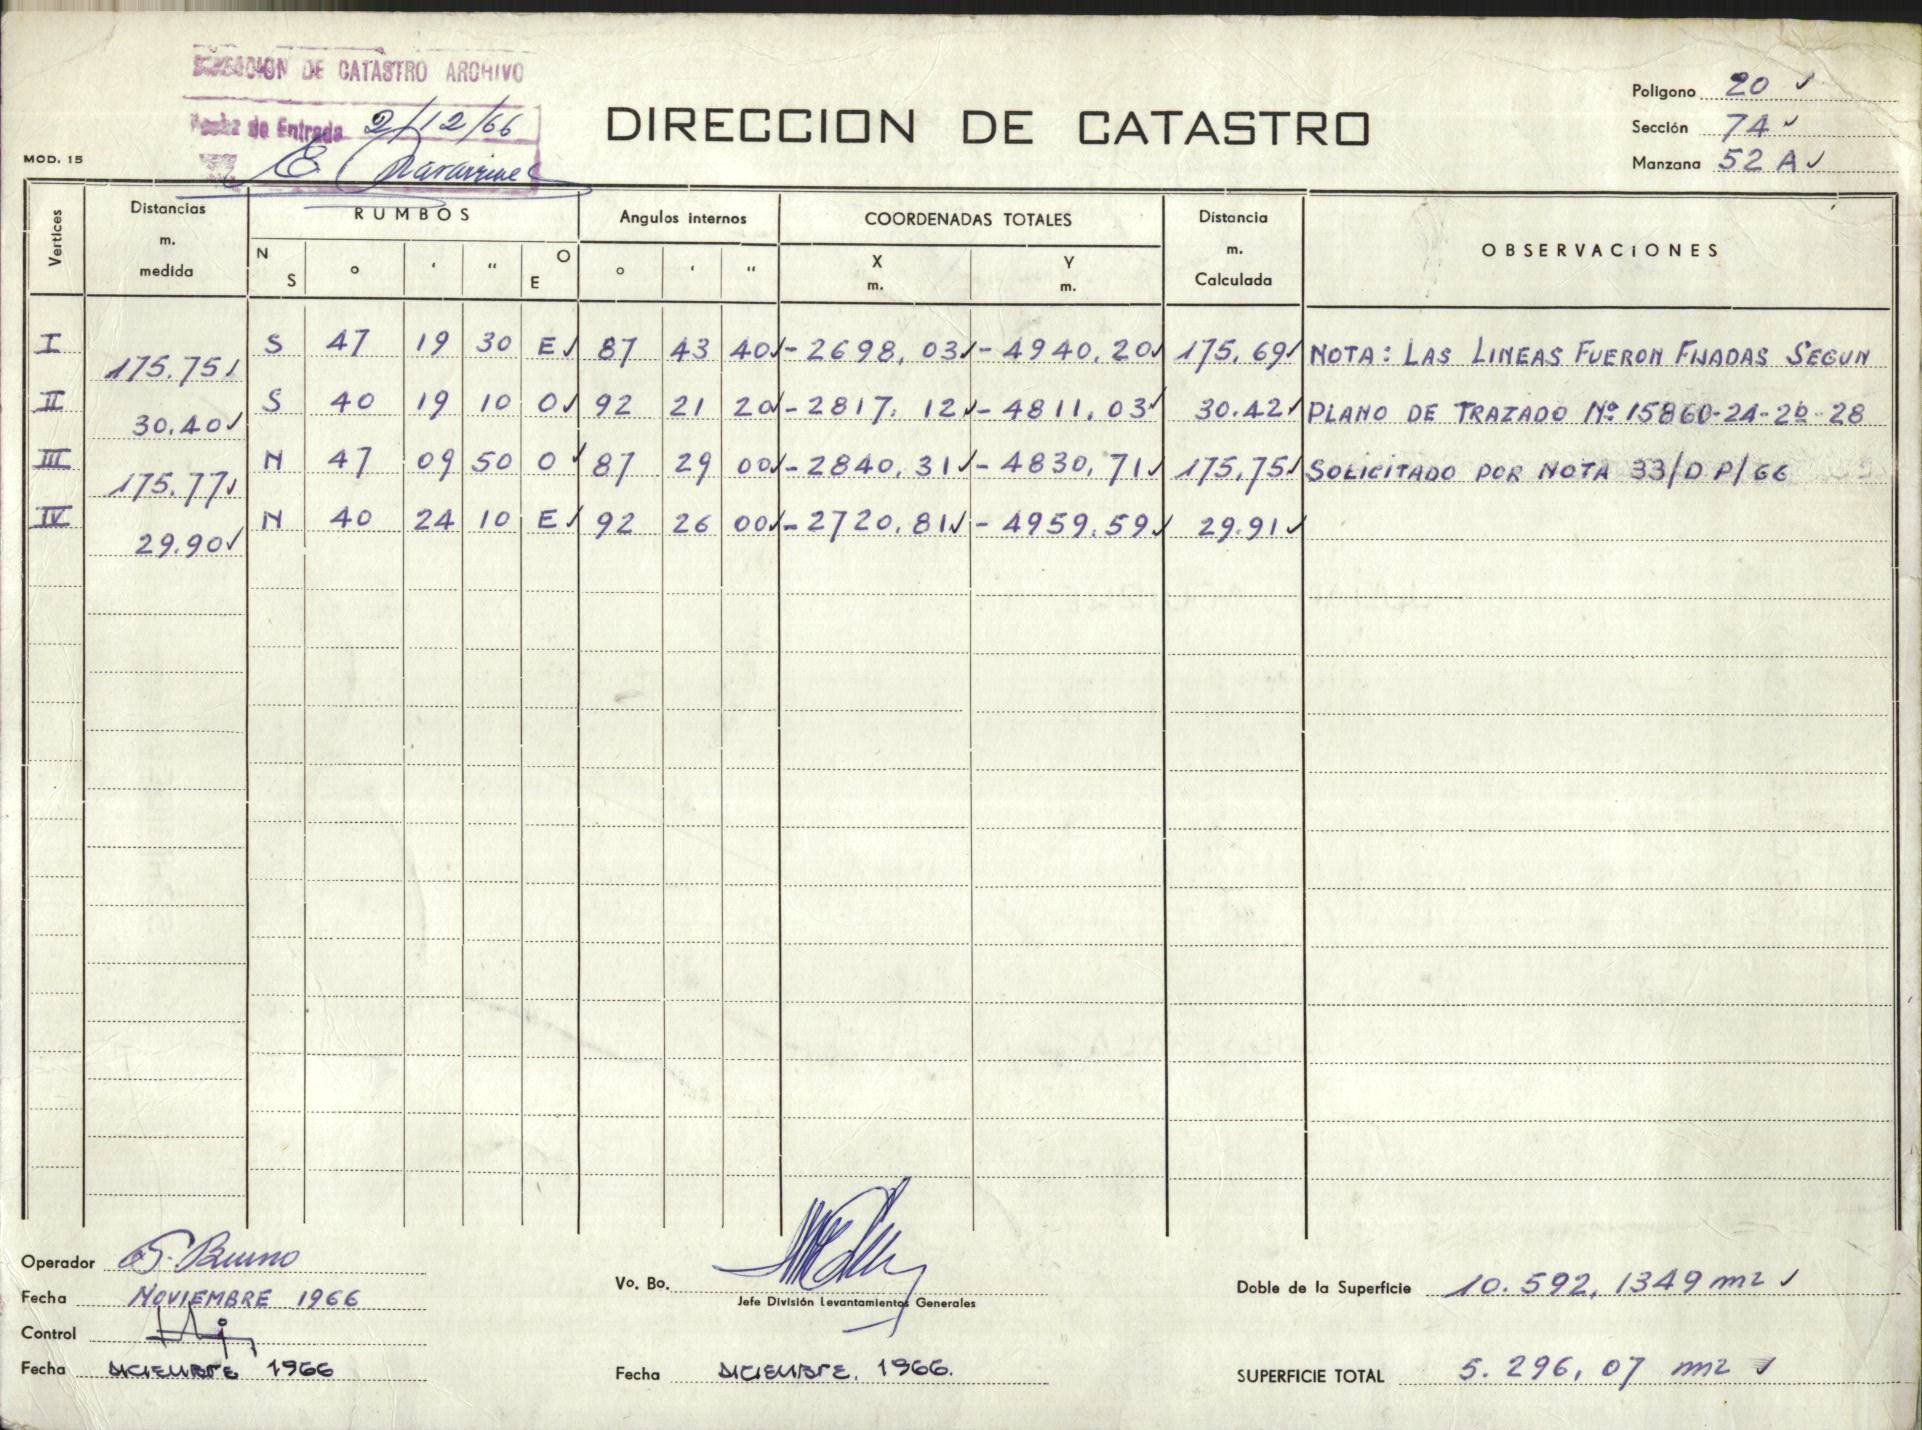 DIRECCION DE CATASTRO ARCHIVO
Fecha de Entrada 2/12/66
MOD. 15
DIRECCION DE CATASTRO
Poligono 20 ✓
Sección 74 ✓
Manzana 52 A ✓
Vertices Distancias m. medida RUMBOS N S o ‘ “ O E Angulos internos o ‘ “ COORDENADAS TOTALES X m. Y m. Distancia m. Calculada OBSERVACIONES
I S 47 19 30 E✓ 87 43 40✓ -2698,03✓ -4940,20✓ 175,69✓ NOTA: LAS LINEAS FUERON FIJADAS SEGUN
175.75✓
II S 40 19 10 O✓ 92 21 20✓ -2817,12✓ -4811,03✓ 30.42✓ PLANO DE TRAZADO Nº 15860-24-2b-28
30.40✓
III N 47 09 50 O✓ 87 29 00✓ -2840,31✓ -4830,71✓ 175,75✓ SOLICITADO POR NOTA 33/D P/66
175.77✓
IV N 40 24 10 E✓ 92 26 00✓ -2720,81✓ -4959,59✓ 29.91✓
29.90✓
Operador S. Bruno
Fecha NOVIEMBRE 1966
Control
Fecha DICIEMBRE 1966
Vo. Bo.
Jefe División Levantamientos Generales
Fecha DICIEMBRE. 1966.
Doble de la Superficie 10.592,1349 m2 ✓
SUPERFICIE TOTAL 5.296,07 m2 ✓